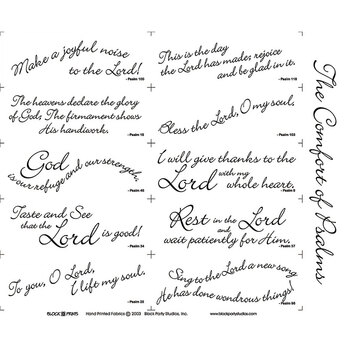 Make a joyful noise
to the Lord!
- Psalm 100
This is the day
the Lord has made; rejoice
and be glad in it.
- Psalm 118
The heavens declare the glory
of God; The firmament shows
His handiwork.
- Psalm 19
Bless the Lord, O my soul.
- Psalm 103
God
is our refuge and our strength.
- Psalm 46
I will give thanks to the
Lord with my
whole heart.
- Psalm 9
Taste and See
that the Lord is good!
- Psalm 34
Rest in the Lord
and
wait patiently for Him.
- Psalm 37
To you, O Lord,
I lift my soul.
- Psalm 25
Sing to the Lord a new song
He has done wondrous things!
- Psalm 98
The Comfort of Psalms
BLOCK PRINTS
Hand Printed Fabrics © 2003
Block Party Studios, Inc.
www.blockpartystudios.com